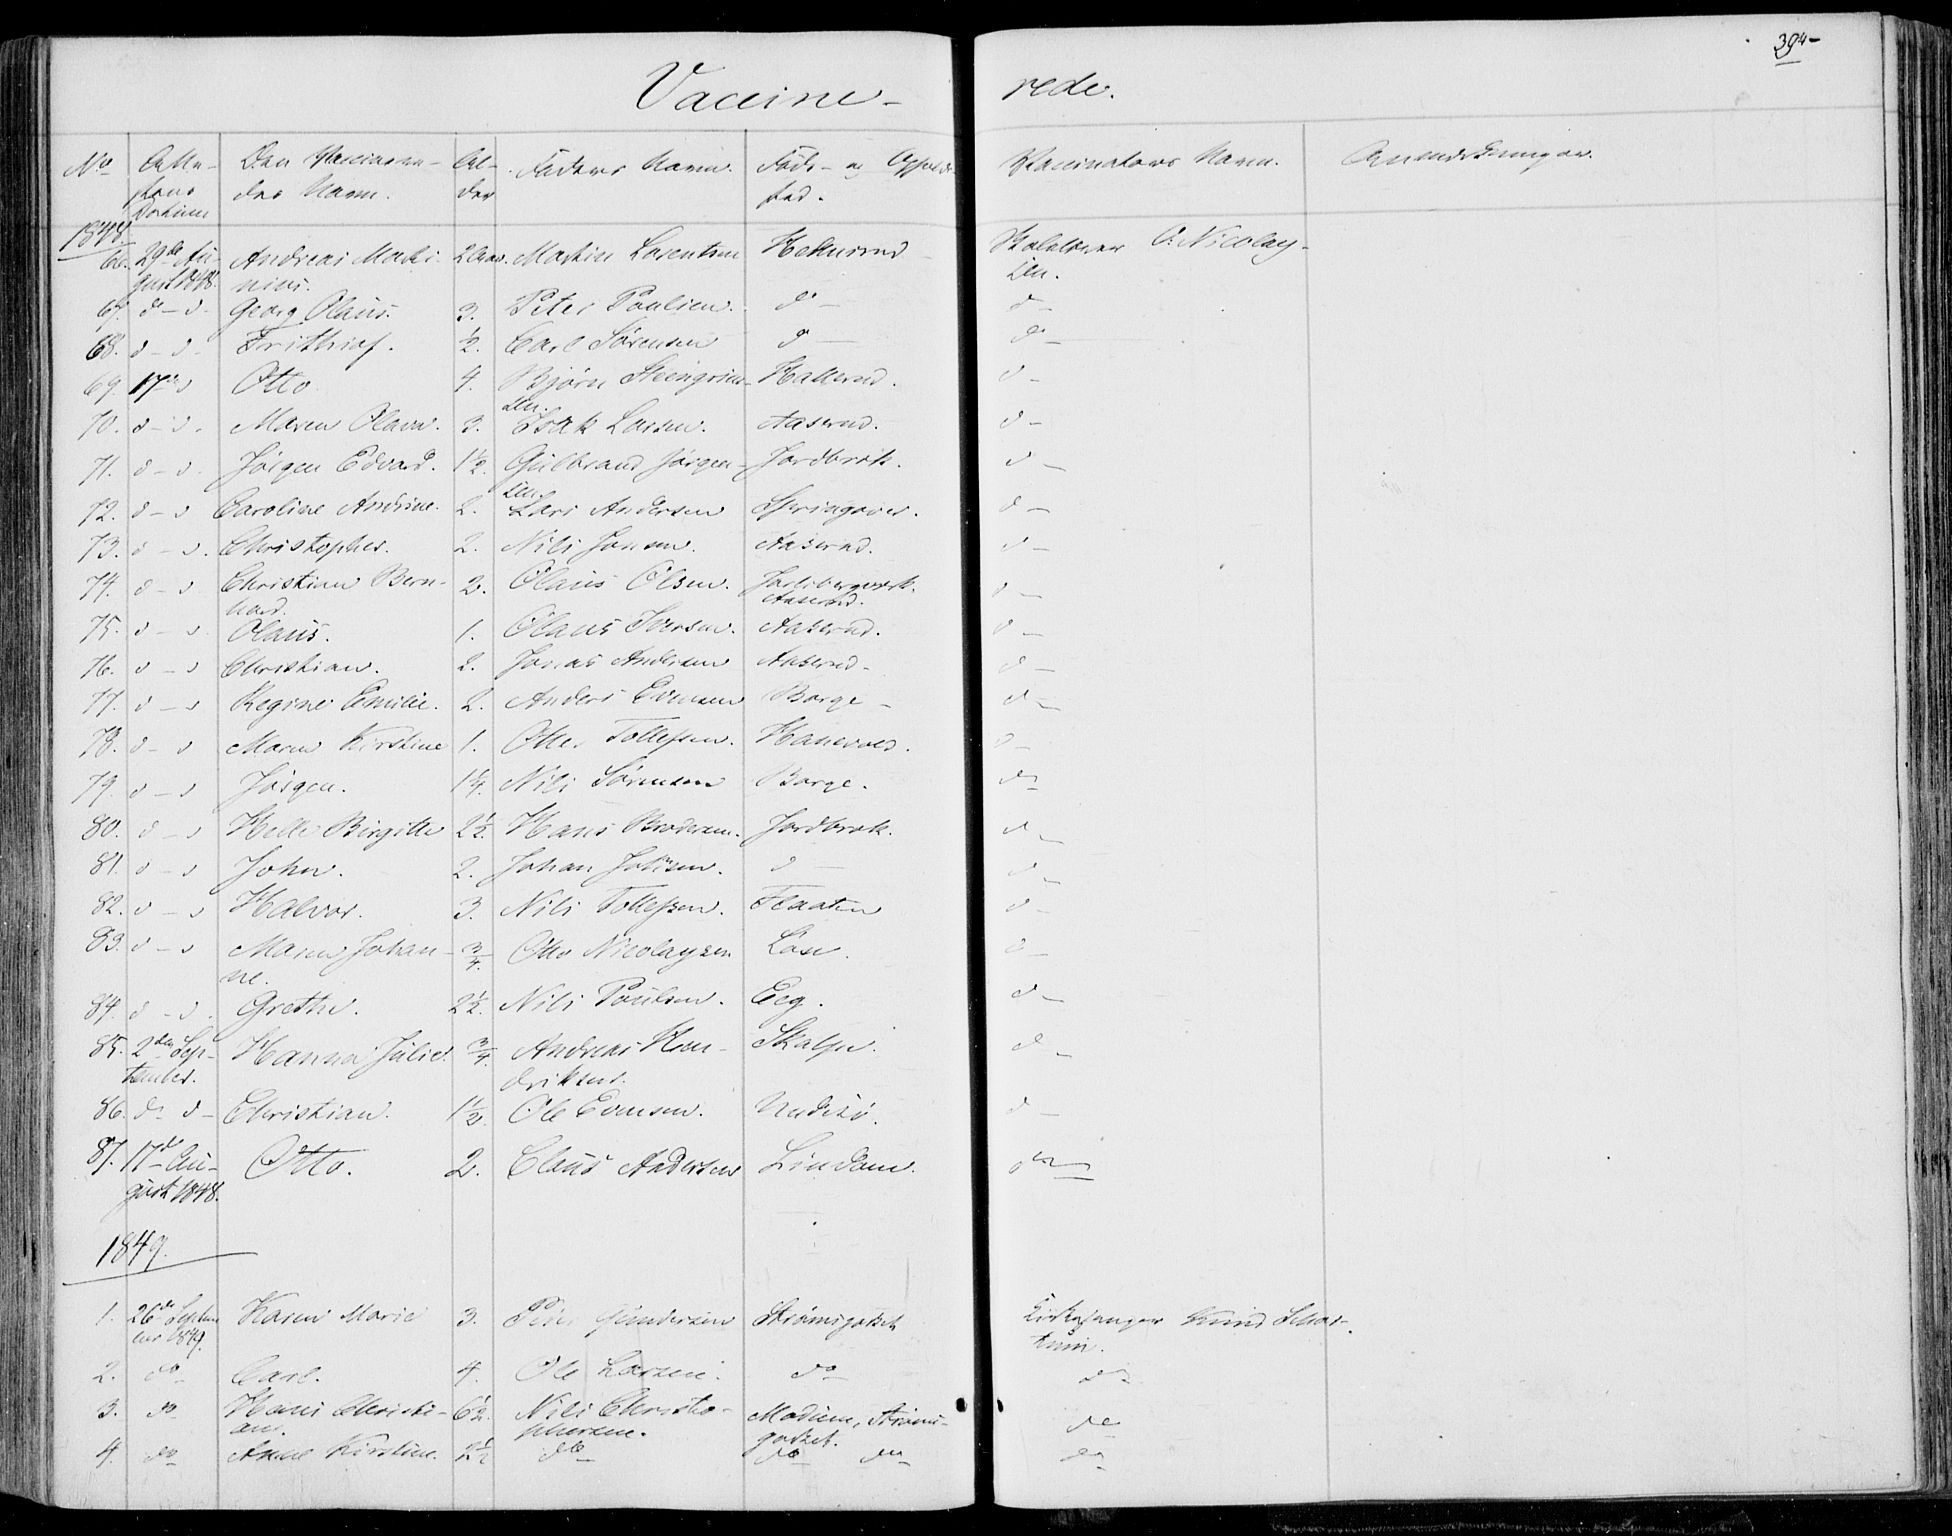 394
Vaccine-rede.
No | Attestens Datum | Den Vaccineredes Navn. | Alder | Faders Navn. | Føde- og Opholdssted. | Vaccinatørs Navn. | Anmærkninger.
1848.
66. | 29de August 1848. | Andreas Martinius. | 2 Aar. | Martin Lorentsen | | Skolelærer O. Nicolaysen.
67. | d - d. | Georg Olaus. | 3. | Peter Paulsen. | do - | d -
68. | d - d. | Frithiof. | 1/2. | Carl Sørensen | d - | do -
69. | 17de d | Otto. | 4. | Bjørn Steingrimsen. | Hallerud. | d -
70. | d - d. | Maren Olava. | 3. | Isak Larsen. | Aaserud. | d -
71. | d - d. | Jørgen Edvard. | 1 1/2. | Gulbrand Jørgensen. | Jordbræk. | d -
72. | d - d | Caroline Andrine. | 2. | Lars Andersen | | d -
73. | d - d. | Christopher. | 2. | Nils Jonsen. | Aaserud. | d -
74. | d - d. | Christian Bernhard. | 2. | Olaus Olsen. | Jarlsbergværk. Aaserud. | d -
75. | d - d. | Olaus. | 1. | Olaus Iversen. | Aaserud. | d -
76. | d - d | Christian. | 2. | Jonas Andersen | Aaserud - | d -
77. | d - d | Regine Emilie. | 2. | Anders Evensen | Borge - | d -
78. | d - d | Maren Kirstine | 1. | Otter Tollefsen. | Hanevold. | d -
79. | d - d | Jørgen. | 1 1/4. | Nils Sørensen | Borge. | d -
80. | d - d | Helle Birgitte | 2 1/2. | Hans Brodersen. | Jordbræk. | d -
81. | d - d | John. | 2. | Johan | d - | d -
82. | d - d | Halvor. | 3. | Nils Tollefsen. | Flaaten | d -
83. | d - d | Maren Johanne. | 3/4. | Otto Nicolaysen | | d -
84. | d - d. | Grethe. | 2 1/2. | Nils Paulsen. | Eeg. | d -
85. | 2den September. | Hanna Julie. | 3/4. | Andreas Hendriksen. | | d -
86. | d - d - | Christian. | 1 1/2. | Ole Evensen. | | d -
87. | 17de August 1848. | Otto. | 2. | Claus Andersen | Lindum. | do
1849.
1. | 26de September 1849. | Karen Marie | 3. | Peder Gundersen | Strømsgodset | Kirkesanger Knud Schartum.
2. | do | Carl. | 4. | Ole Larsen. | do | do
3. | do | Hans Christian. | 6 1/2. | Nils Christophersen. | Modum, Strømsgodset. | do
4. | do | Anne Kirstine. | 2 1/2 | do | do do | do